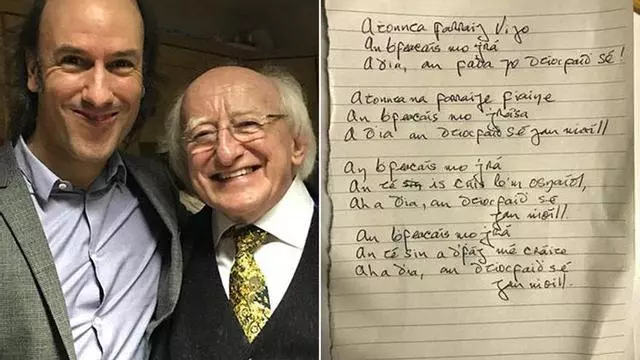 A tonnca farraig Vigo
An bfeacais mo grá
A Dia, an fada go dtiocfaid sé!
A tonnca na farraige fiaine
An bfeacais mo grása
A Dia, an dtiocfaid sé gan moill
An bfeacais mo grá
An té is cúis lem osnaíol,
Aha Dia, an dtiocfaid sé
gan moill.
An bfeacais mo grá
An té sin a d'fág mé cráite
Aha Dia, an dtiocfaid sé
gan moill.